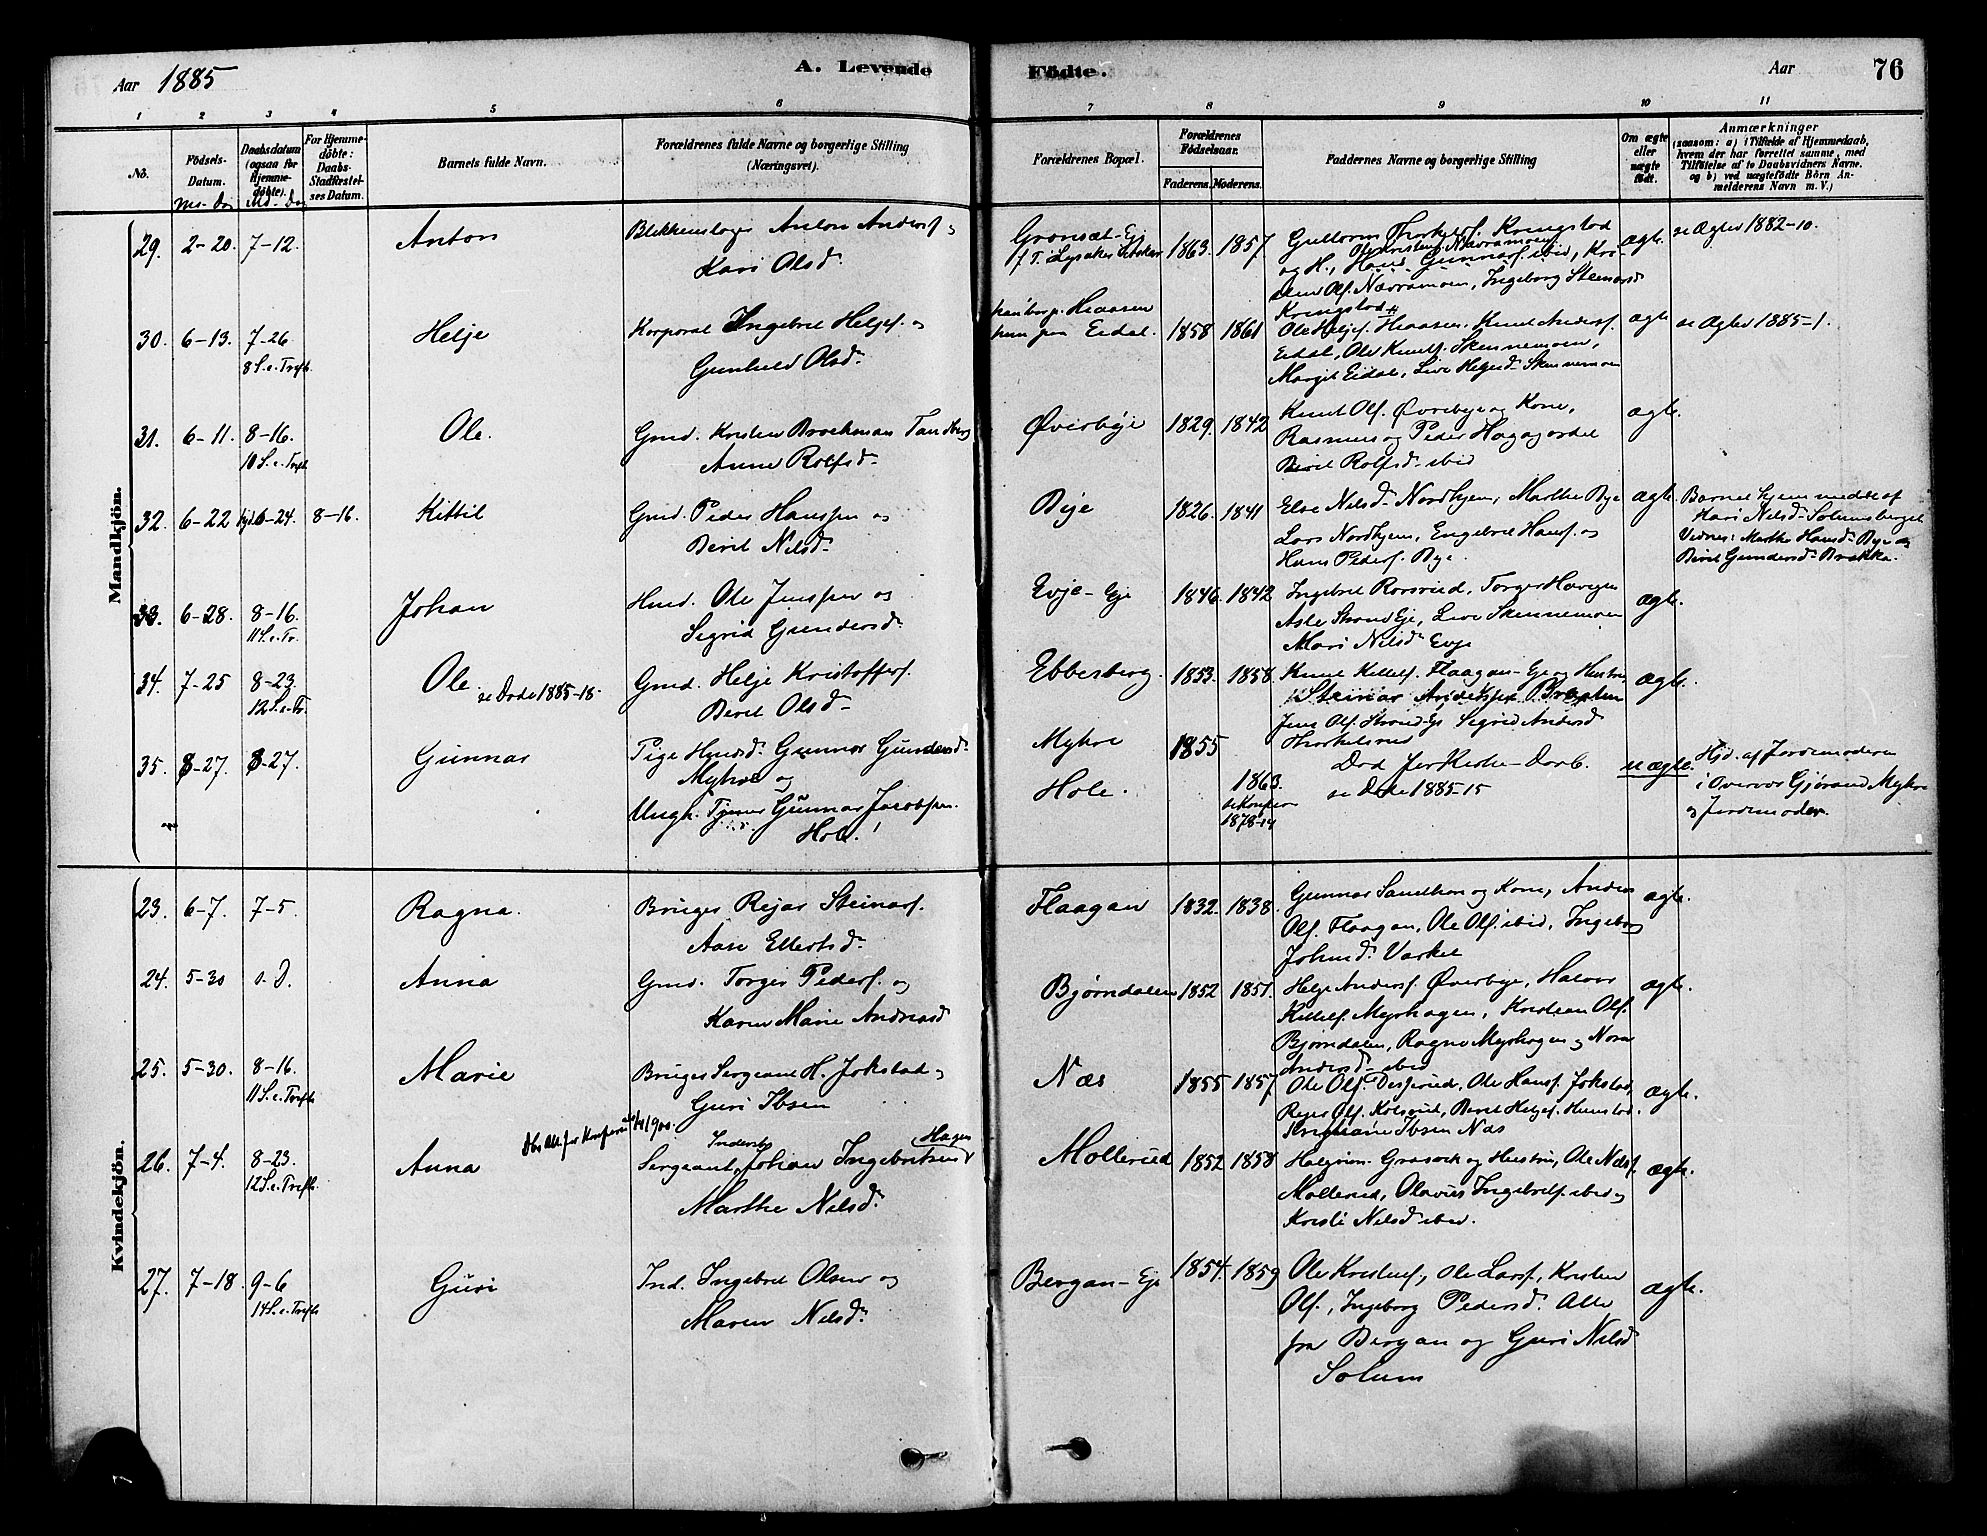 Aar 1885
A. Levende
Födte.
Aar
76
1 2 3 4 5 6 7 8 9 10 11
No.
Födsels-
Datum.
Md- Dag
Daabsdatum
(ogsaa for
Hjemme-
döbte).
Md- Dag
For Hjemme-
döbte:
Daabs-
Stadfæstel-
ses Datum.
Barnets fulde Navn.
Forældrenes fulde Navne og borgerlige Stilling
(Næringsvei).
Forældrenes Bopæl.
Forældrenes
Födselsaar.
Faderens. Moderens.
Faddernes Navne og borgerlige Stilling
Om ægte
eller
uægte
födt.
Anmærkninger
(saasom: a) i Tilfælde af Hjemmedaab,
hvem der har forrettet samme, med
Tilföielse af to Daabsvidners Navne,
og b) ved uægtefödte Börn An-
melderens Navn m. V.)
Mandkjön.
29. 2-20. 7-12.
Anton
Blikkenslager Anton Andersf. og
Kari Olsd.
Gronsæt-Eje
1863. 1857.
Guttorm Thorkjelsf. Kringstad
og H., Hans Gunnarsf. ibid, Kri-
sten Olsf. Nævramoen, Ingeborg Steinarsd
Kringstad
ægte.
se Ægtev 1882-10.
30. 6-13. 7-26
8 S. e. Trefh.
Helje
Korporal Ingebret Heljesf. og
Gunhild Olsd.
Haasen
Eidal.
1858 1861
Ole Heljesf. Haasen, Knut Andersf.
Eidal, Ole Knutsf. Skinnemoen,
Margit Eidal, Live Helgesd. Skinnemoen
ægte
se Ægtev 1885-1.
31. 6-11. 8-16.
10 S. e. Trefh
Ole.
Gmd. Kristen Brockman Tandberg
Anne Rolfsd.
Øverbye
1829. 1842
Knut Olsf. Øverbye og Kone,
Rasmus og Peder Hagagardet
Berit Rolfsd. ibid
ægte.
32. 6-22 hjd. 6-24. 8-16.
Kittil
Gmd. Peder Hanssen og
Berit Nilsd.
Bye
1826. 1841
Else Nilsd. Nordhjem, Marthe Bye
Lars Nordhjem, Engebret Hansf. og
Hans Pedersf. Bye.
ægte.
Barnet hjemmedøbt af
Kari Nilsd. Solumsberget
Vidner: Marthe Hansd. Bye og
Berit Gundersd. Brekka.
33. 6-28. 8-16.
11 S. e. Tr.
Johan
Hmd. Ole Jenssen og
Sigrid Gundersd.
Evje-Eje
1846. 1842
Ingebret Rorsrud, Torger Havigen
Asle Strand Eje, Live Skinnemoen
Mari Nilsd. Evje
ægte.
34. 7-25 8-23
12 S. e. Tr.
Ole. se Døde 1885-18.
Gmd. Helje Kristoffersf.
Berit Olsd.
Ebbesberg.
1853. 1858
Knut Kittelsf. Flaagan-Eje og Hustru
Steinar
Jens Olsf. Strand-Eje Sigrid Andersd
Thorkelsrud
ægte.
35. 8-27. 8-27.
Gunnar
Pige Hmdsd. Gunnor Gundersd.
Myhre og
Ungk. Tjener Gunnar Jacobssen.
Hole.
Myhre
Hole.
1855
1863.
se Konfirm
1878-14
Død før Kirke-Daab.
se Døde 1885-15
uægte.
Hjd. af Jordemoderen
i Overvær Gjørand Myhre
og Jordemoder.
Kvindekjön.
23. 6-7. 7-5.
Ragna.
Bruger Rejar Steinarsf.
Aase Ellertsd.
Flaagan
1832. 1838.
Gunnar Sandhem og Kone, Anders
Olsf. Flaagan, Ole Olsf. ibid, Ingeborg
Johnsd. Varkel
ægte.
24. 5-30 s. D.
Anna
Gmd. Torger Pedersf. og
Karen Marie Andreasd
Bjørndalen
1852 1851.
Helje Andersf. Øverbye, Halvor
Kittelsf. Myrhagen, Kristian Olsf.
Bjørndalen, Ragne Myrhagen og Nora
Andersd ibid
ægte.
25. 5-30. 8-16.
11 S. e. Trefh
Marie
Bruger Sergeant H. Jokstad og
Guri Ibsen
Næs
1855 1857.
Ole Olsf. Desserud, Ole Hansf. Jokstad,
Rejer Olsf. Kolsrud, Berit Heljesd. Hunstad.
Kristiane Ibsen Næs
ægte.
26. 7-4. 8-23.
12 S. e. Trefh.
Anna
Inderst
Hagen
Sergeant Johan Ingebretsen og
Marthe Nilsd.
Mollerud
1852 1858
Halgrim Græsvik og Hustru, Ole Nilsf.
Mollerud, Olavus Ingebretsf. ibid og
Kristi Nilsd ibid.
ægte.
27. 7-18. 9-6
14 S. e. Trefh
Guri
Ind. Ingebret Olsen og
Maren Nilsd.
Bergan-Eje
1854. 1859
Ole Kristensf., Ole Larsf., Kristen
Olsf., Ingeborg Pedersd. Alle
fra Bergan og Guri Nilsd
Solum
ægte.